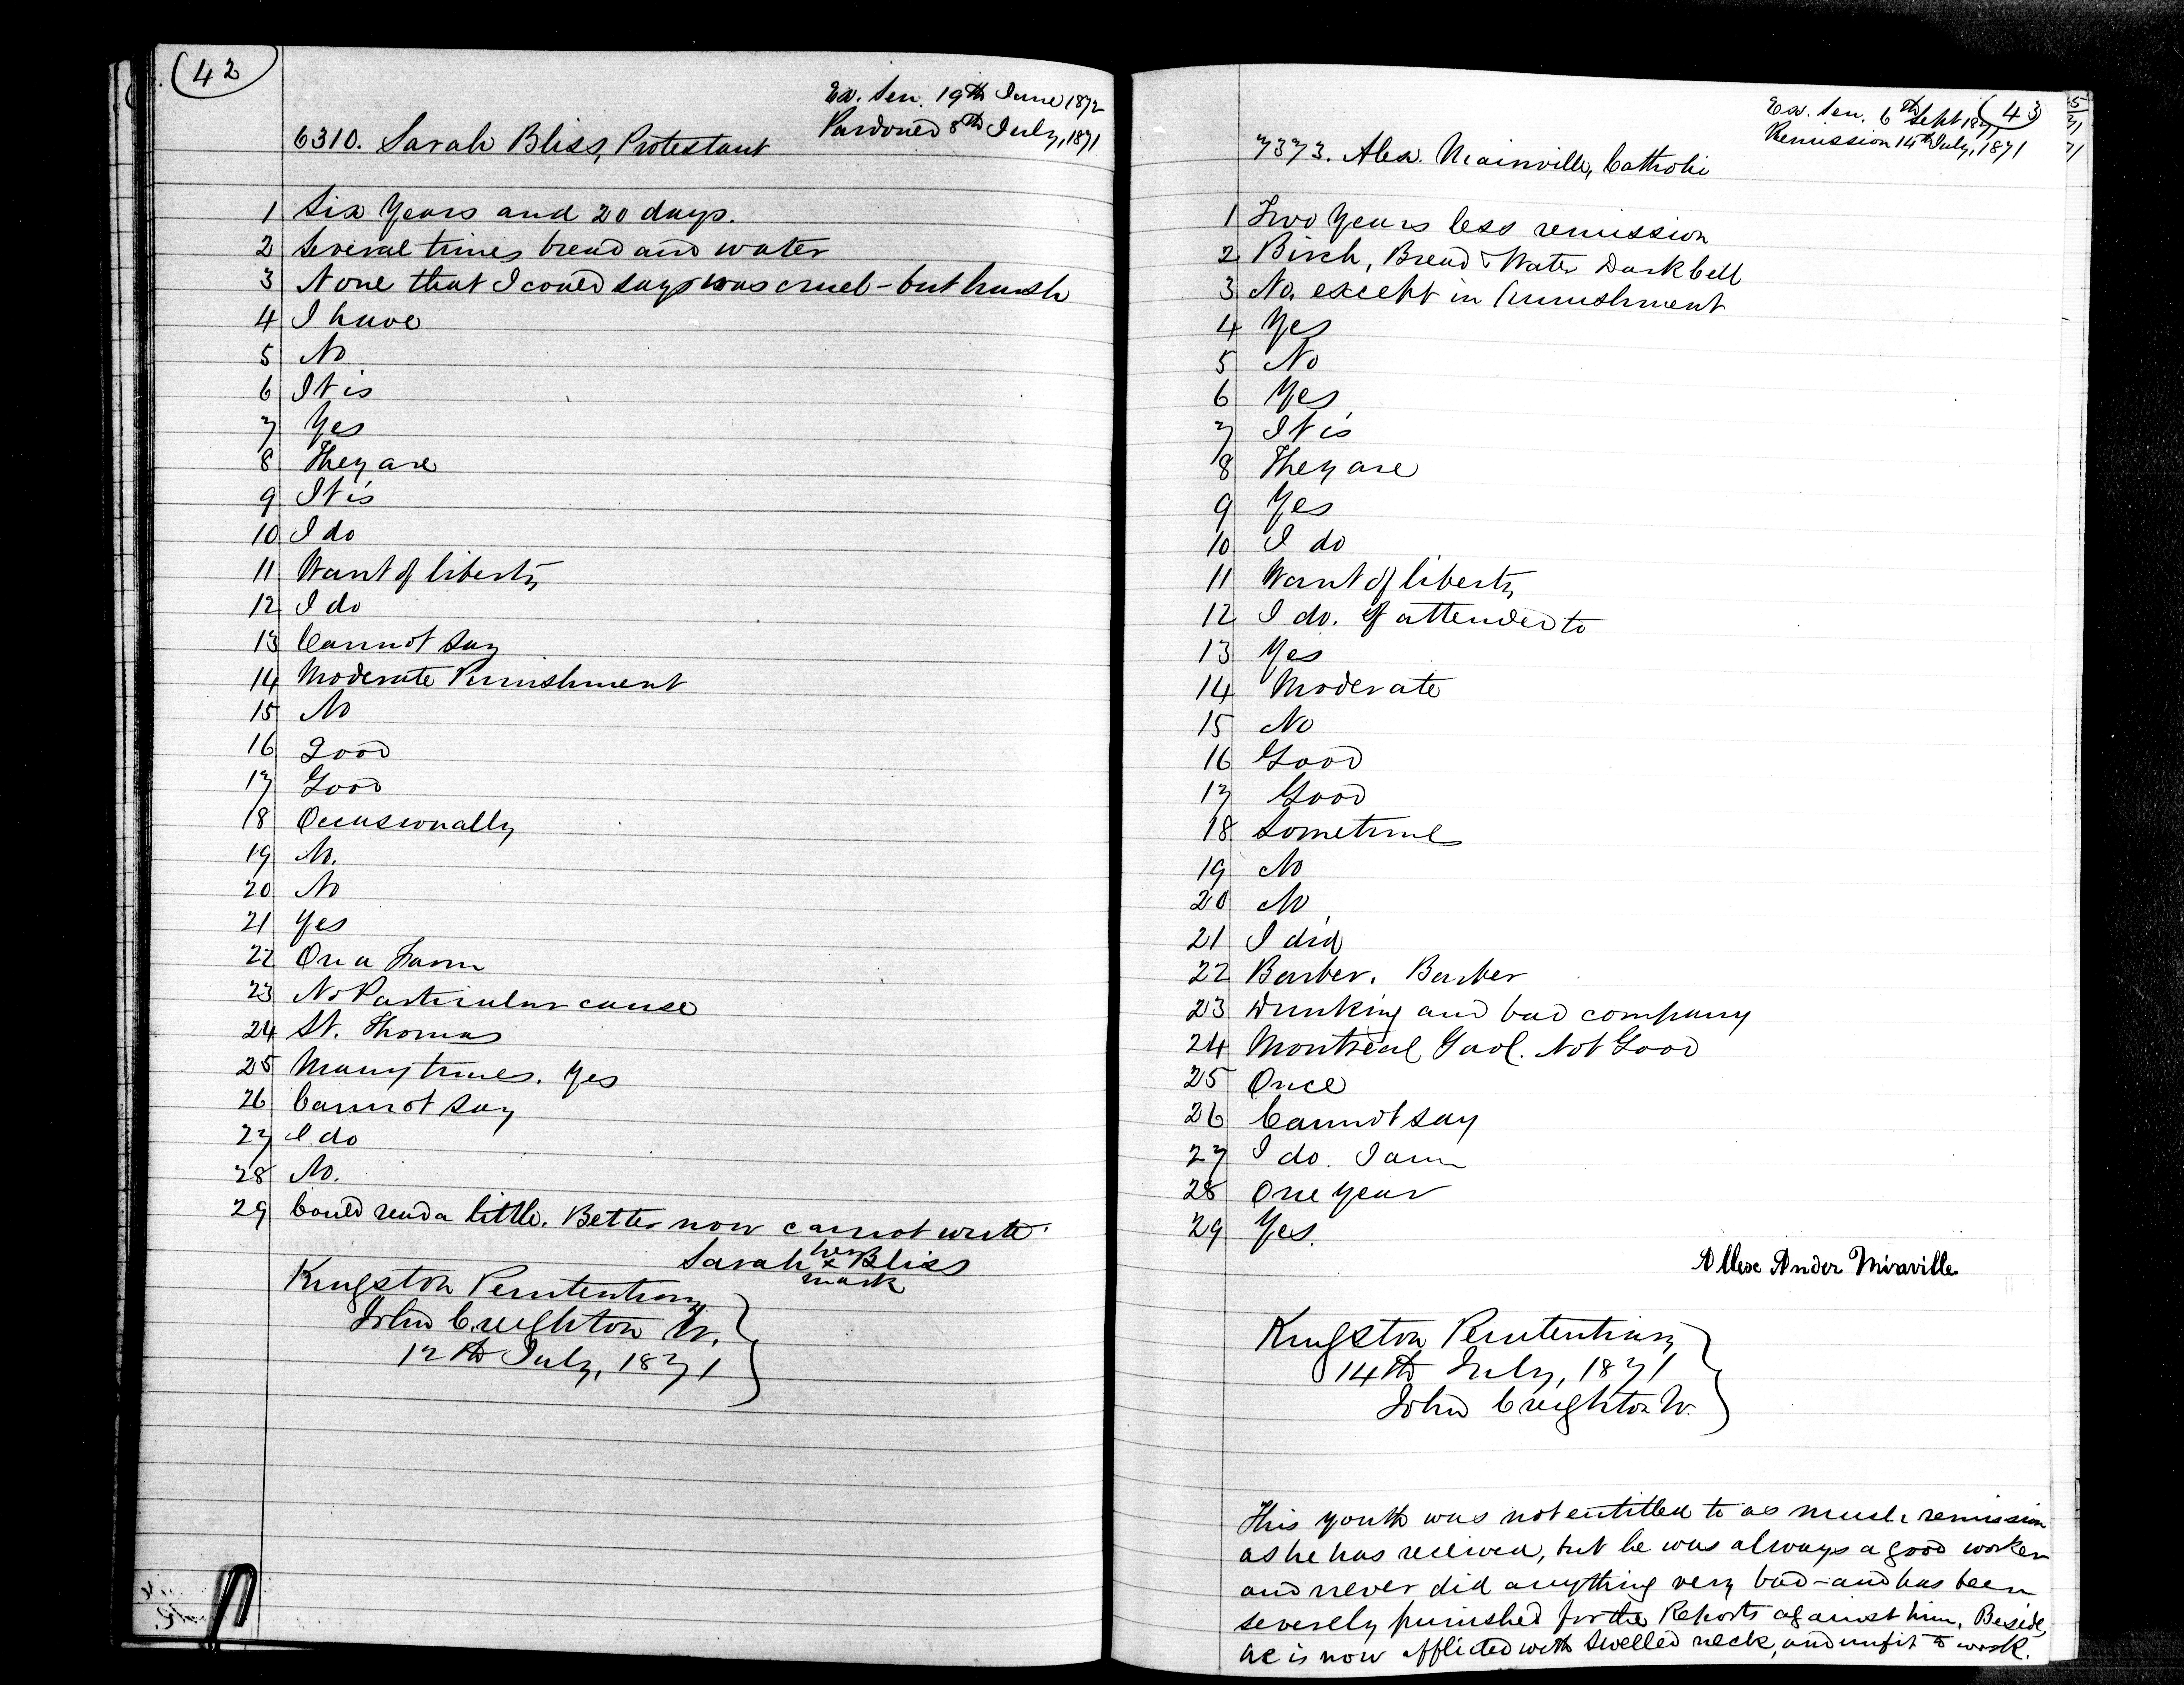 (42
Ex. Sen. 19th June 1872
Pardoned 8th July, 1871
6310. Sarah Bliss, Protestant
1 Six Years and 20 days.
2 Several times bread and water
3 None that I could say was cruel - but harsh
4 I have
5 No
6 It is
7 Yes
8 They are
9 It is
10 I do
11 Want of liberty
12 I do
13 Cannot say
14 Moderate Punishment
15 No
16 Good
17 Good
18 Occasionally
19 No.
20 No
21 Yes
22 On a Farm
23 No Particular cause
24 St. Thomas
25 Many times. Yes
26 Cannot say
27 I do
28 No.
29 Could read a little. Better now cannot write.
Sarah her x mark Bliss
Kingston Penitentiary
John Creighton W.
12th July, 1871
(43
Ex. Sen. 6th Sept 1871
Remission 14th July, 1871
7373. Alex. Mainville, Catholic
1 Two Years less remission
2 Birch, Bread & Water Dark Cell
3 No, except in Punishment
4 Yes
5 No
6 Yes
7 It is
8 They are
9 Yes
10 I do
11 Want of liberty
12 I do. If attended to
13 Yes
14 Moderate
15 No
16 Good
17 Good
18 Sometimes
19 No
20 No
21 I did
22 Barber. Barber
23 Drinking and bad company
24 Montreal Gaol. Not Good
25 Once
26 Cannot say
27 I do. I am
28 One year
29 Yes.
Allexe Ander Miraville
Kingston Penitentiary
14th July, 1871
John Creighton W.
This youth was not entitled to as much remission
as he has received, but he was always a good worker
and never did anything very bad - and has been
severely punished for the Reports against him. Beside,
he is now afflicted with swelled neck, and unfit to work.